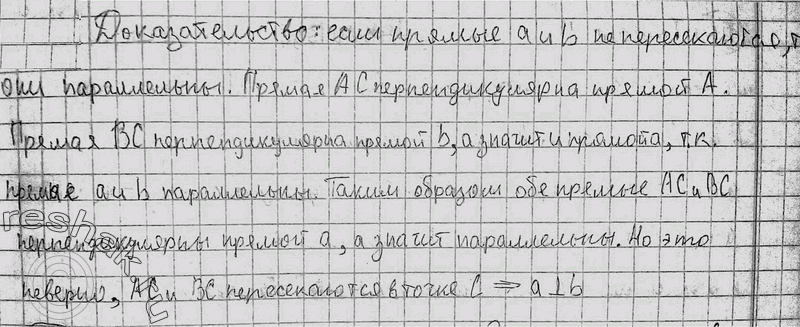 Доказательство: если прямые a и b не пересекаются, т
они параллельны. Прямая AC перпендикулярна прямой A.
Прямая BC перпендикулярна прямой b, а значит и прямой a, т.к.
прямые a и b параллельны. Таким образом обе прямые AC и BC
перпендикулярны прямой a, а значит параллельны. Но это
неверно, AC и BC пересекаются в точке C ⇒ a ⊥ b
reshak